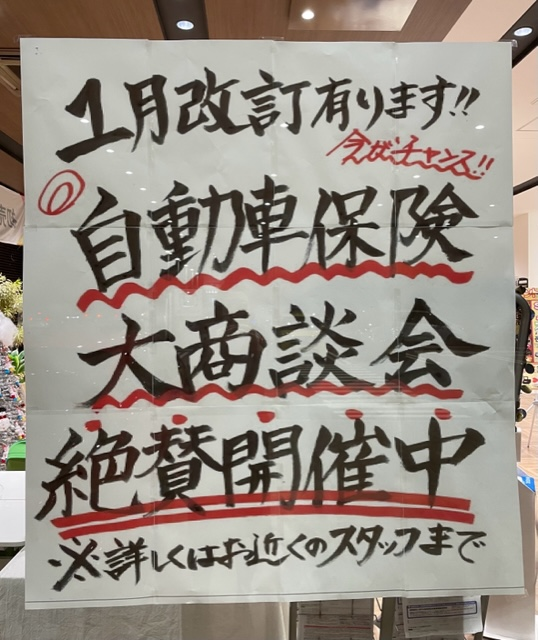 1月改訂有ります!!
今がチャンス!!
◎自動車保険
大商談会
絶賛開催中
※詳しくはお近くのスタッフまで